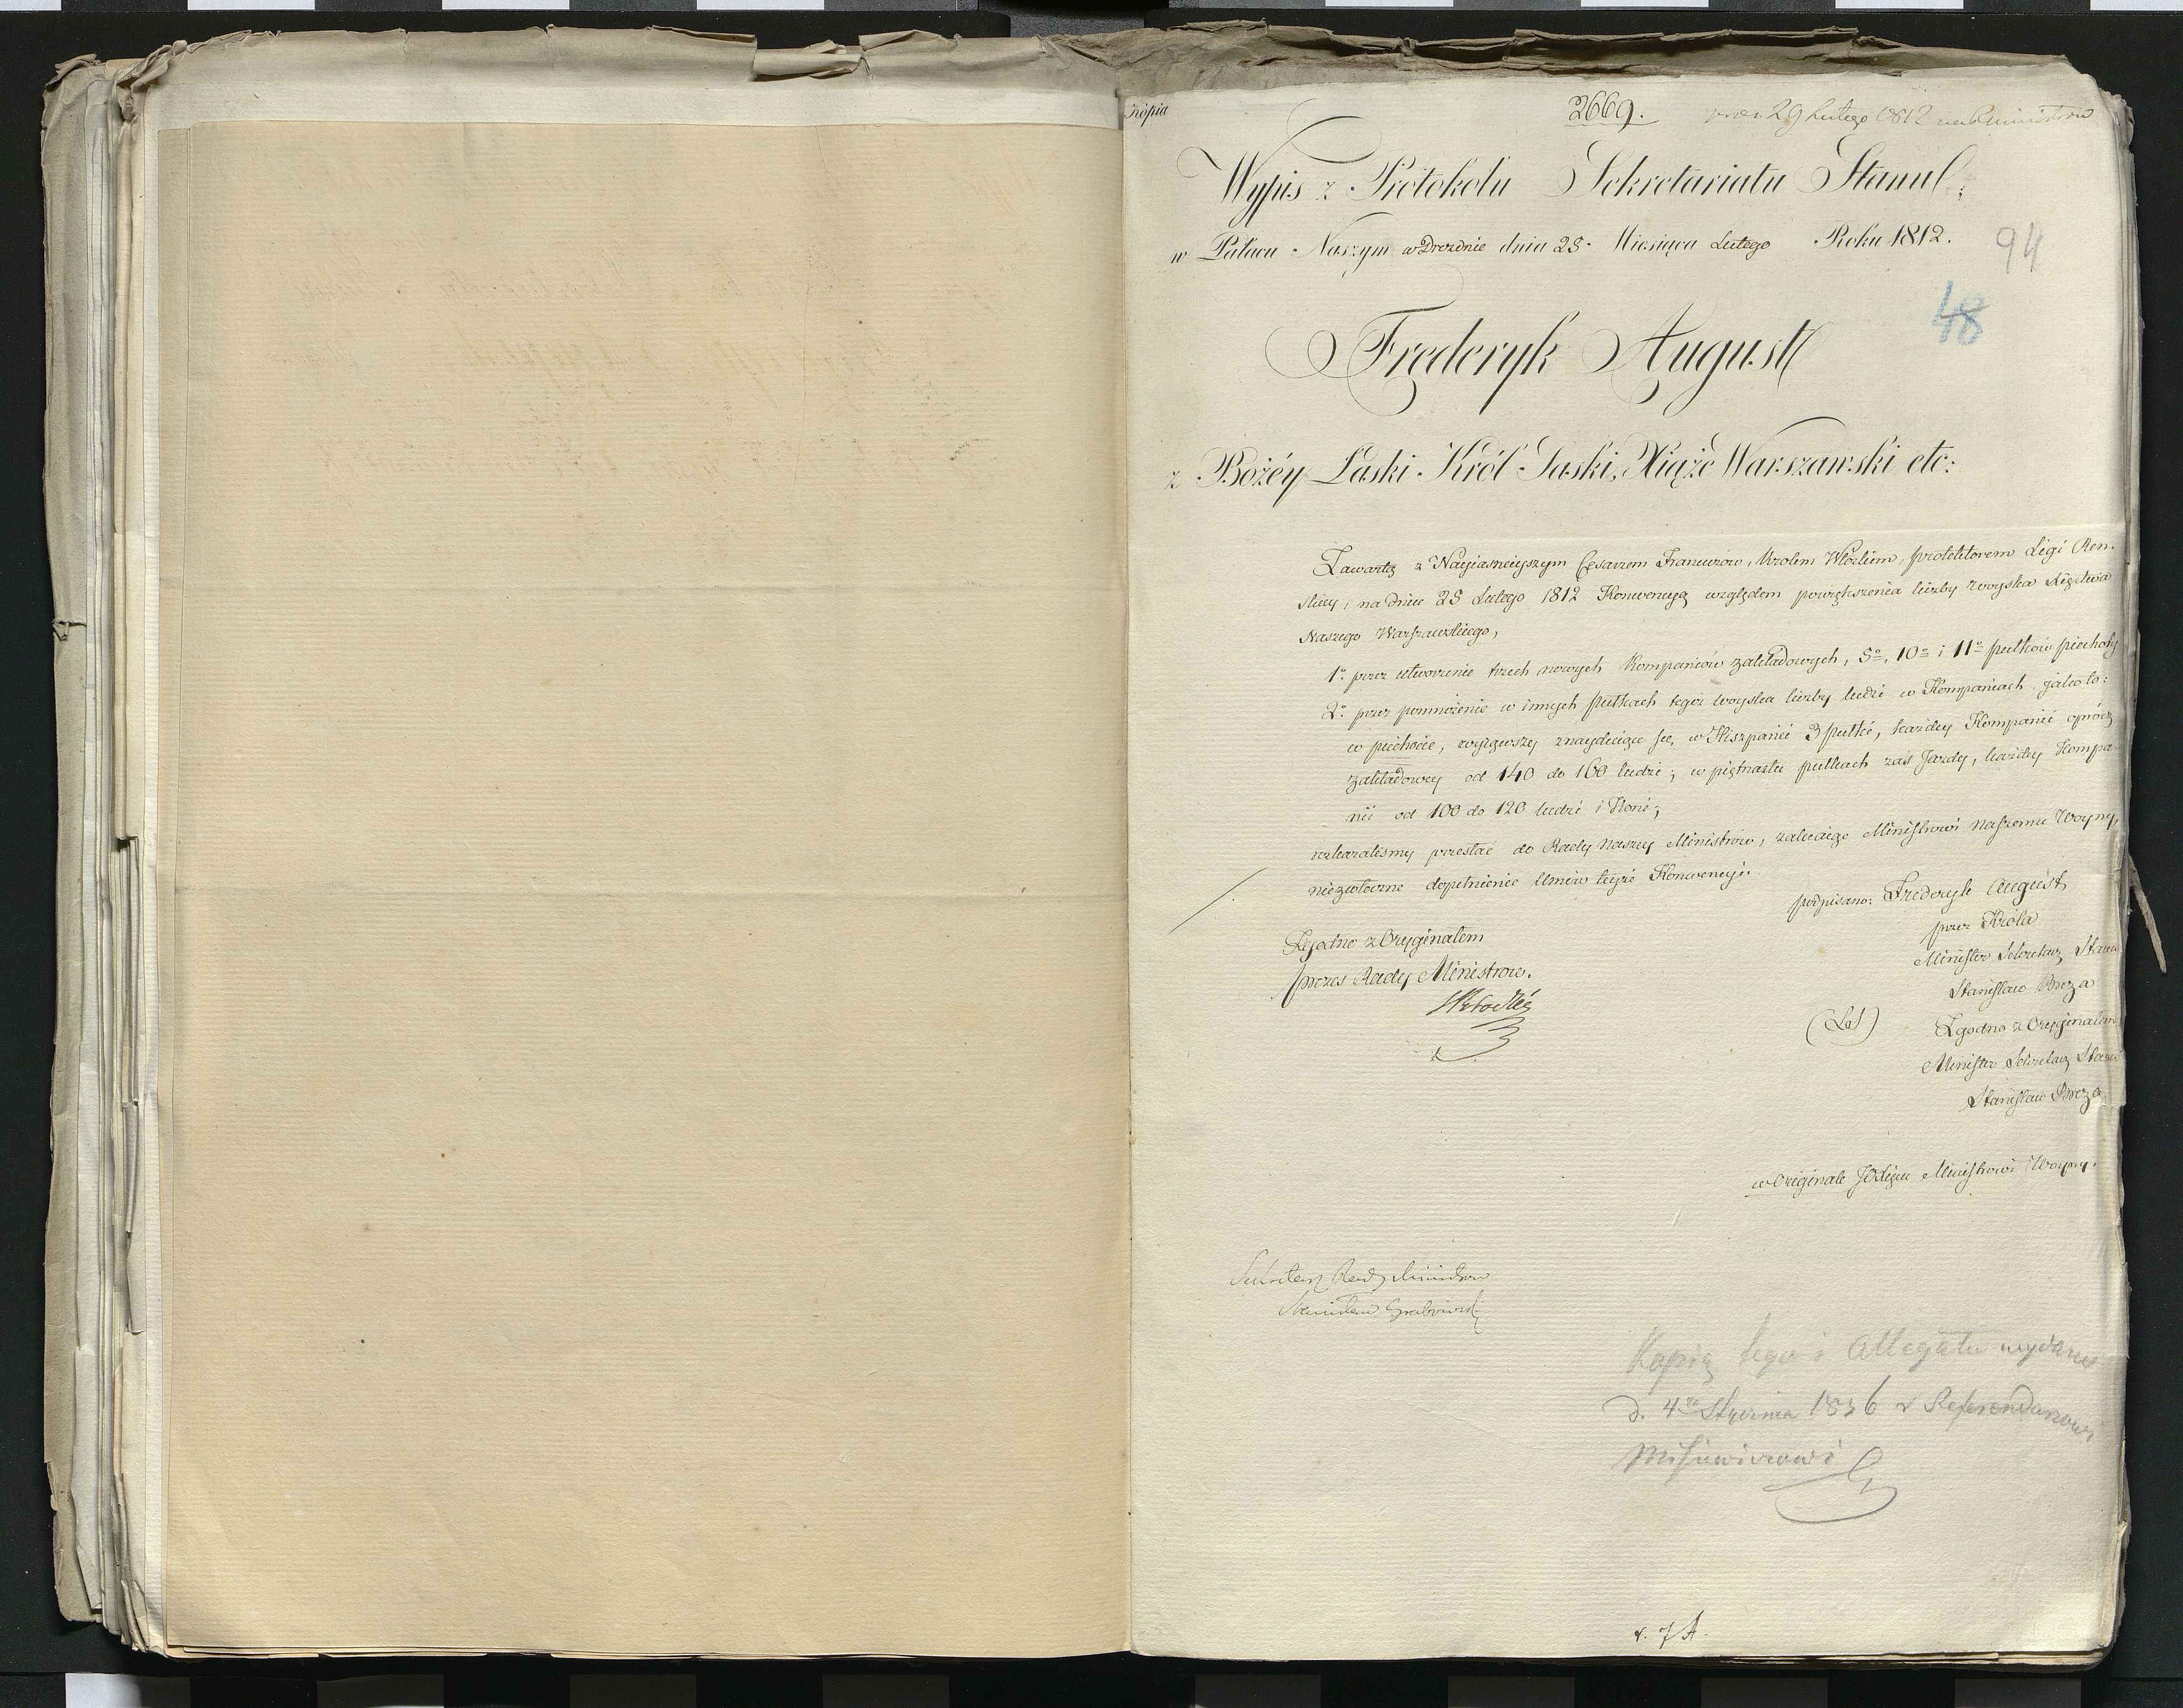 Kópia
2669.
29 Lutego 1812
Wypis z Protokołu Sekretariatu Stanu:
w Pałacu Naszym w Dreznie dnia 25. Miesiąca Lutego Roku 1812.
94
48
Frederyk August
z Bożéy Łaski Król Saski, Xiążę Warszawski etc:
Zawartą z Nayiasnieyszym Cesarzem Francuzów, Krolem Włoskim, protektorem Ligi Ren-
skiey, na dniu 25 Lutego 1812 Konwencyą względem powiększenia liczby woyska Xięstwa
Naszego Warszawskiego,
1º. przez utworzenie trzech nowych Kompaniów zakładowych, 5º, 10º i 11º pułków piechoty
2º. przez pomnożenie w innych pułkach tegoż woyska liczby ludzi w Kompaniach jako to:
w piechocie, wyiąwszy znayduiące się w Hiszpanii 3 pułki, każdey Kompanii oprócz
zakładowey od 140 do 160 ludzi; w piętnastu pułkach zaś Jazdy, każdey Kompa-
nii od 100 do 120 ludzi i Koni;
rozkazalismy przesłać do Rady Naszey Ministrów, zalecaiąc Ministrowi Naszemu Woyny,
niezwłoczne dopełnienie Umów teyże Konwencyi.
podpisano: Frederyk August
przez Króla
Minister Sekretarz Stanu
Stanisław Breza
Zgodno z Oryginałem
prezes Rady Ministrow.
(LS)
Zgodno z Oryginałem
Minister Sekretarz Stanu
Stanisław Breza
w Originale JOXięciu Ministrowi Woyny.
Sekretarz Rady Ministrow
Stanisław Grabowski
Kopią tego i Allegatu wydano
d. 4go Stycznia 1836 Referendarzowi
v. 7 A.